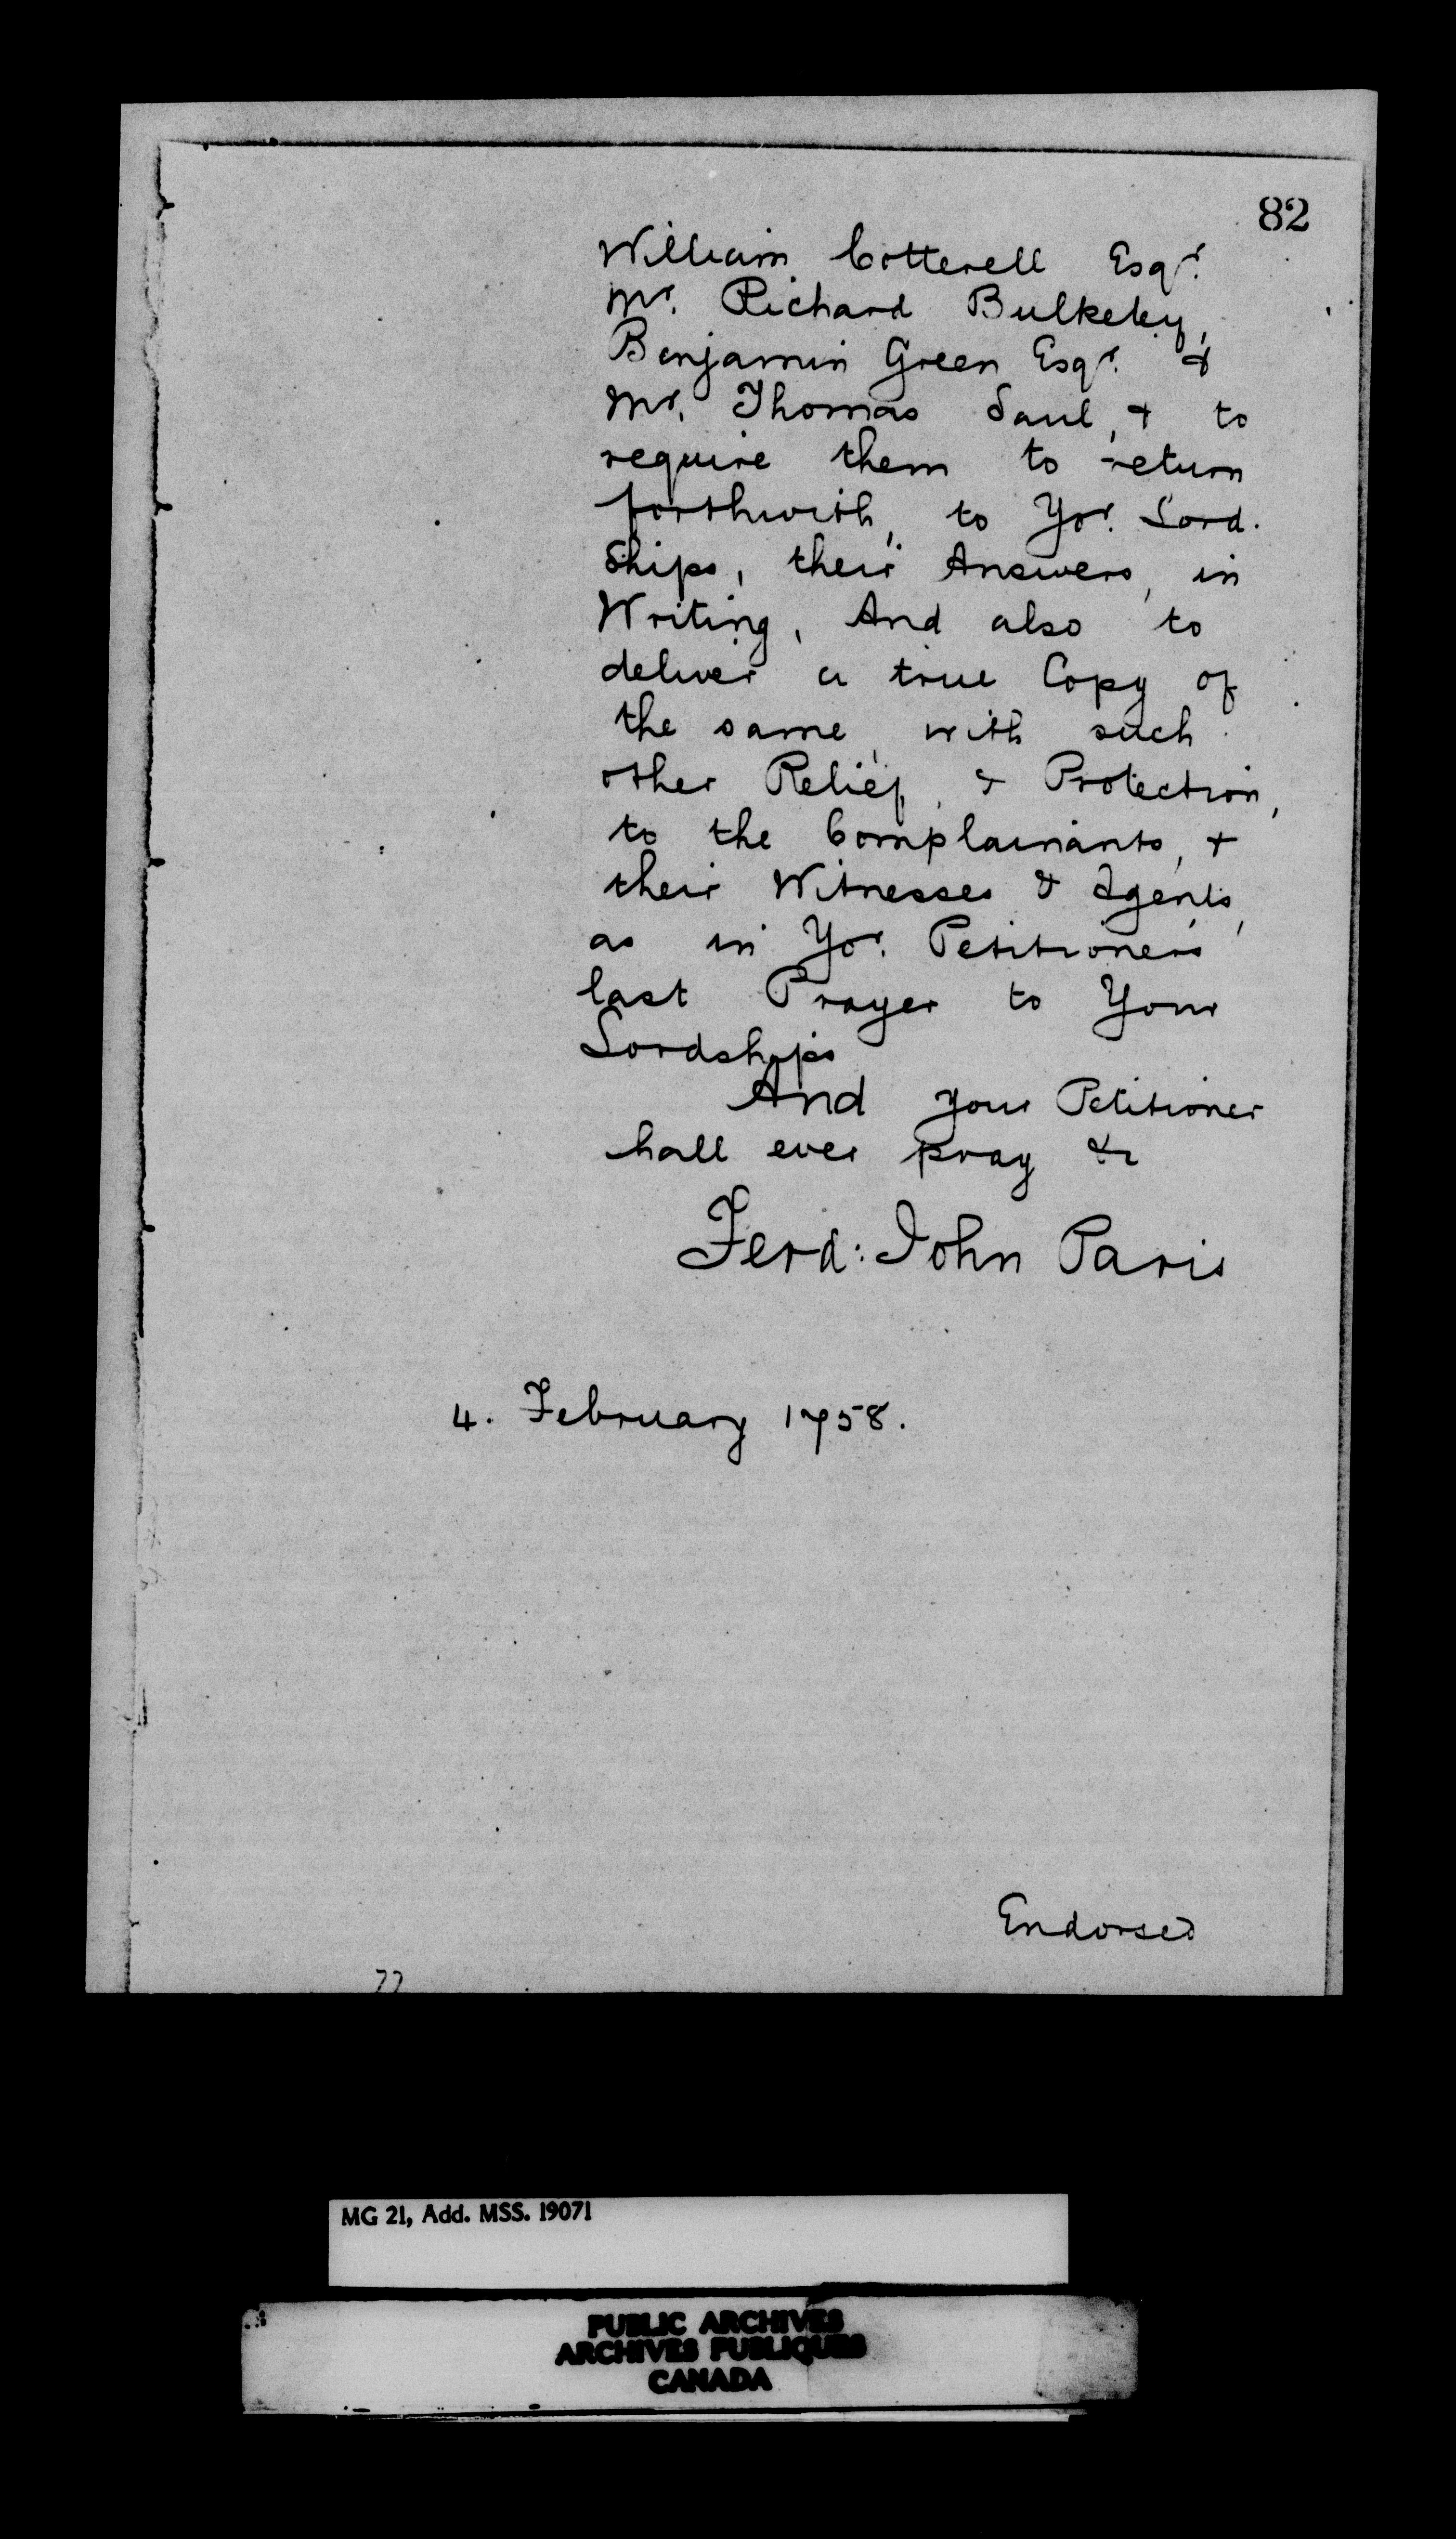 82
William Cotterell Esqr.
Mr. Richard Bulkeley,
Benjamin Green Esqr. &
Mr. Thomas Saul, & to
require them to return
forthwith, to Yor. Lord.
Ships, their Answers, in
Writing, And also to
deliver a true Copy of
the same, with such
other Relief, & Protection,
to the Complainants, &
their Witnesses & Agents,
as in Yor. Petitioners
last Prayer to Your
Lordships
And your Petitioner
hall ever pray &c
Ferd: John Paris
4. February 1758.
Endorsed
77
MG 21, Add. MSS. 19071
PUBLIC ARCHIVES
ARCHIVES PUBLIQUES
CANADA